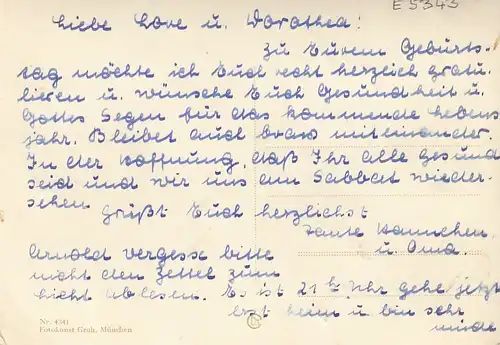 E 5343
Liebe Lore u. Dorothea!
Zu Eurem Geburts-
tag möchte ich Euch recht herzlich gratu-
lieren u. wünsche Euch Gesundheit u.
Gottes Segen für das kommende Lebens
jahr. Bleibet auch brav miteinander.
In der Hoffnung, daß Ihr alle gesund
seid und wir uns am Sabbat wieder-
sehen
grüßt Euch herzlichst
Tante Hannchen
u. Oma.
Arnold vergesse bitte
nicht den Zettel zum
Licht ablesen. Es ist 21 Uhr gehe jetzt
erst heim u bin sehr
müde
Nr. 4341
Fotokunst Groh, München